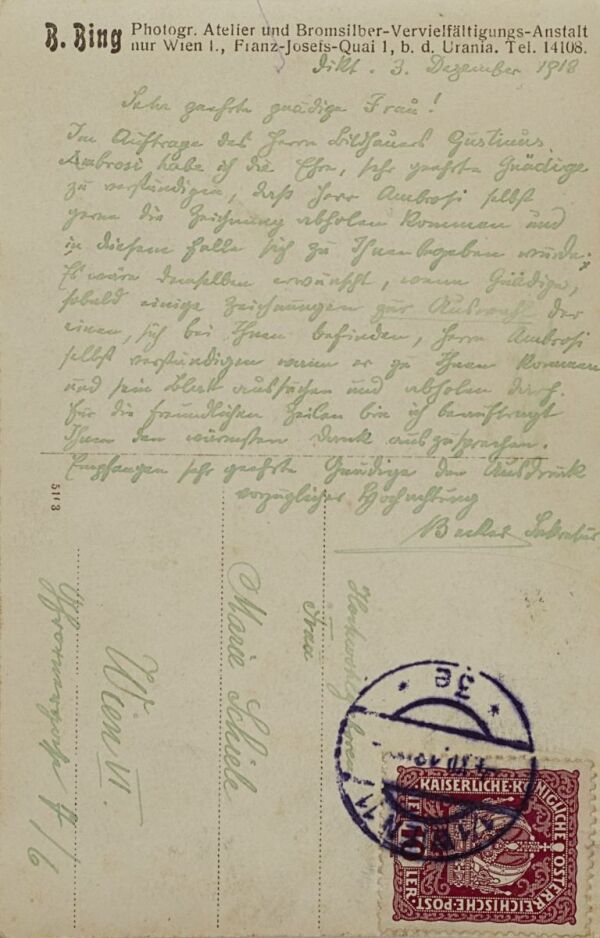 B. Bing Photogr. Atelier und Bromsilber-Vervielfältigungs-Anstalt
nur Wien I., Franz-Josefs-Quai 1, b. d. Urania. Tel. 14108.
Dikt. 3. Dezember 1918
Sehr geehrte gnädige Frau!
Im Auftrage des Herrn Bildhauers Gustinus
Ambrosi habe ich die Ehre, sehr geehrte Gnädige
zu verständigen, daß Herr Ambrosi selbst
gerne die Zeichnung abholen kommen und
in diesem Falle sich zu Ihnen begeben würde.
Es wäre demselben erwünscht, wenn Gnädige,
sobald einige Zeichnungen zur Auswahl der
einen, sich bei Ihnen befinden, Herrn Ambrosi
selbst verständigen wann er zu Ihnen kommen
und sein Blatt aussuchen und abholen darf.
Für die freundlichen Zeilen bin ich beauftragt
Ihnen den wärmsten Dank auszusprechen.
Empfangen sehr geehrte Gnädige den Ausdruck
vorzüglicher Hochachtung
Becker Sekretär
5113
Frau
Marie Schiele
Wien VI.
7/6
3e
WIEN 11
KAISERLICHE KÖNIGLICHE ÖSTERREICHISCHE POST
10 HELLER